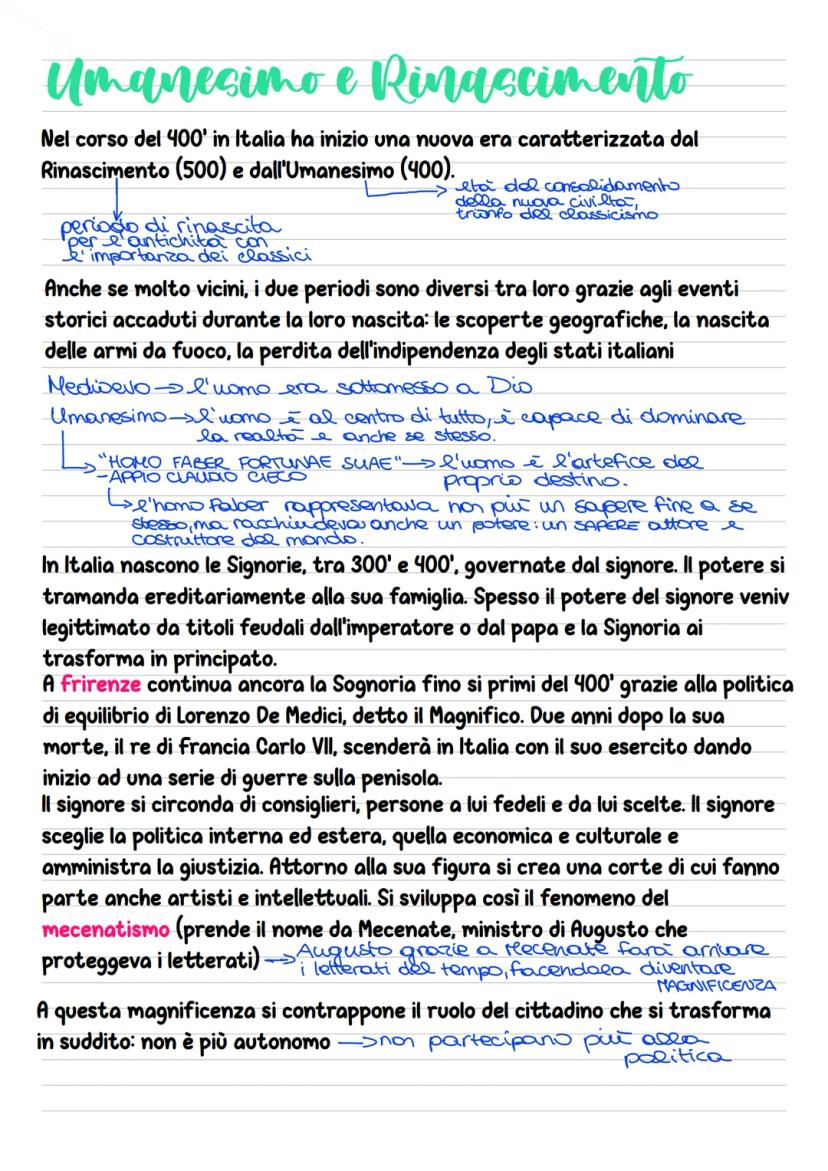 Umanesimo e Rinascimento
Nel corso del 400' in Italia ha inizio una nuova era caratterizzata dal
Rinascimento (500) e dall'Umanesimo (400).
età del consolidamento
della nuova civiltà,
trionfo del classicismo
periodo di rinascita
per l'antichità con
l'importanza dei classici
Anche se molto vicini, i due periodi sono diversi tra loro grazie agli eventi
storici accaduti durante la loro nascita: le scoperte geografiche, la nascita
delle armi da fuoco, la perdita dell'indipendenza degli stati italiani
Medioevo → l'uomo era sottomesso a Dio
Umanesimo → l'uomo è al centro di tutto, è capace di dominare
la realtà e anche se stesso.
"HOMO FABER FORTUNAE SUAE" → l'uomo è l'artefice del
-APPIO CLAUDIO CIECO proprio destino.
l'homo faber rappresentava non più un sapere fine a se
stesso, ma racchiudeva anche un potere: un SAPERE attore e
costruttore del mondo.
In Italia nascono le Signorie, tra 300' e 400', governate dal signore. Il potere si
tramanda ereditariamente alla sua famiglia. Spesso il potere del signore veniv
legittimato da titoli feudali dall'imperatore o dal papa e la Signoria ai
trasforma in principato.
A frirenze continua ancora la Sognoria fino si primi del 400' grazie alla politica
di equilibrio di Lorenzo De Medici, detto il Magnifico. Due anni dopo la sua
morte, il re di francia Carlo VII, scenderà in Italia con il suo esercito dando
inizio ad una serie di guerre sulla penisola.
Il signore si circonda di consiglieri, persone a lui fedeli e da lui scelte. Il signore
sceglie la politica interna ed estera, quella economica e culturale e
amministra la giustizia. Attorno alla sua figura si crea una corte di cui fanno
parte anche artisti e intellettuali. Si sviluppa così il fenomeno del
mecenatismo (prende il nome da Mecenate, ministro di Augusto che
proteggeva i letterati) → Augusto grazie a Mecenate farà arrivare
i letterati del tempo, facendola diventare
MAGNIFICENZA
A questa magnificenza si contrappone il ruolo del cittadino che si trasforma
in suddito: non è più autonomo → non partecipano più alla
politica